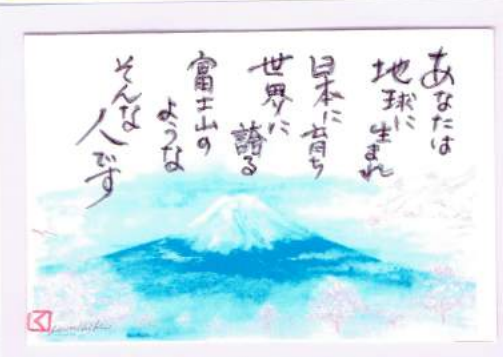 あなたは
地球に生まれ
日本に育ち
世界に
誇る
富士山の
ような
そんな
人です
く